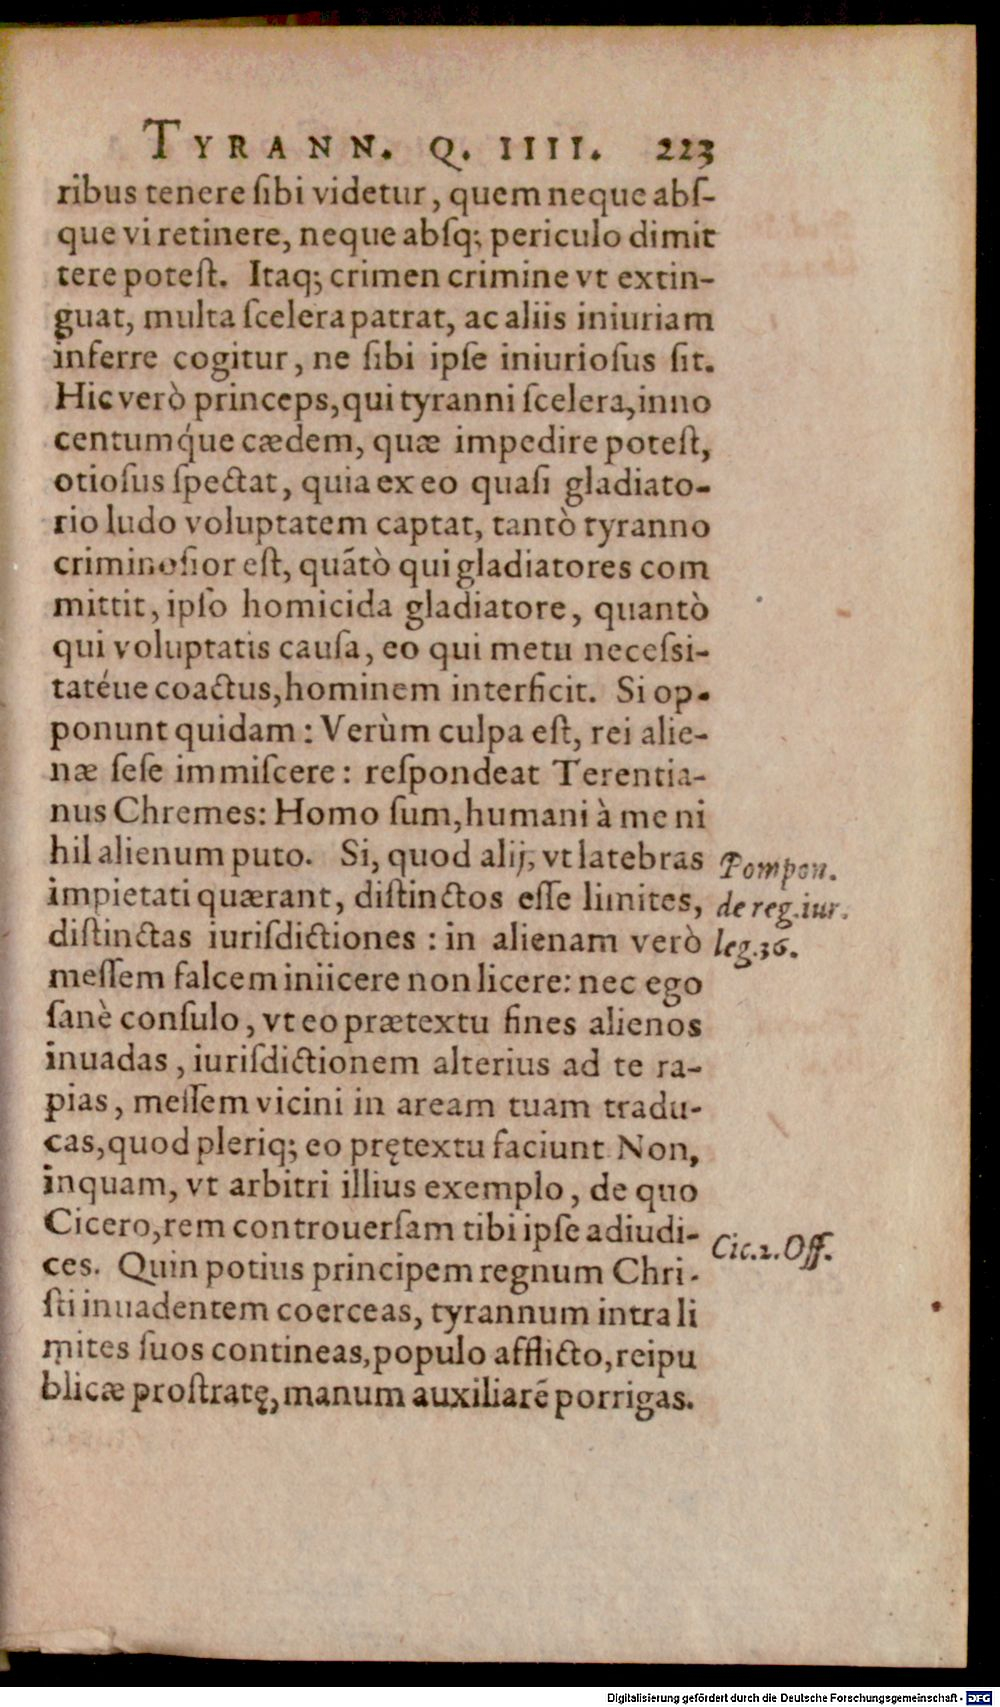 TYRANN. Q. IIII. 223
ribus tenere ſibi videtur, quem neque abſ-
que vi retinere, neque abſq; periculo dimit
tere poteſt. Itaq; crimen crimine vt extin-
guat, multa ſcelera patrat, ac aliis iniuriam
inferre cogitur, ne ſibi ipſe iniurioſus ſit.
Hic verò princeps, qui tyranni ſcelera, inno
centumq́ue cædem, quæ impedire poteſt,
otioſus ſpectat, quia ex eo quaſi gladiato-
rio ludo voluptatem captat, tantò tyranno
criminoſior eſt, quātò qui gladiatores com
mittit, ipſo homicida gladiatore, quantò
qui voluptatis cauſa, eo qui metu neceſsi-
tatéue coactus, hominem interficit. Si op-
ponunt quidam: Verùm culpa eſt, rei alie-
næ ſeſe immiſcere: reſpondeat Terentia-
nus Chremes: Homo ſum, humani à me ni
hil alienum puto. Si, quod alij, vt latebras
Pompon.
impietati quærant, diſtinctos eſſe limites,
de reg. iur.
diſtinctas iuriſdictiones: in alienam verò
leg. 36.
meſſem falcem iniicere non licere: nec ego
ſanè conſulo, vt eo prætextu fines alienos
inuadas, iuriſdictionem alterius ad te ra-
pias, meſſem vicini in aream tuam tradu-
cas, quod pleriq; eo prętextu faciunt. Non,
inquam, vt arbitri illius exemplo, de quo
Cicero, rem controuerſam tibi ipſe adiudi-
Cic. 1. Off.
ces. Quin potius principem regnum Chri-
ſti inuadentem coerceas, tyrannum intra li
mites ſuos contineas, populo afflicto, reipu
blicæ proſtratę, manum auxiliarē porrigas.
Digitalisierung gefördert durch die Deutsche Forschungsgemeinschaft - DFG